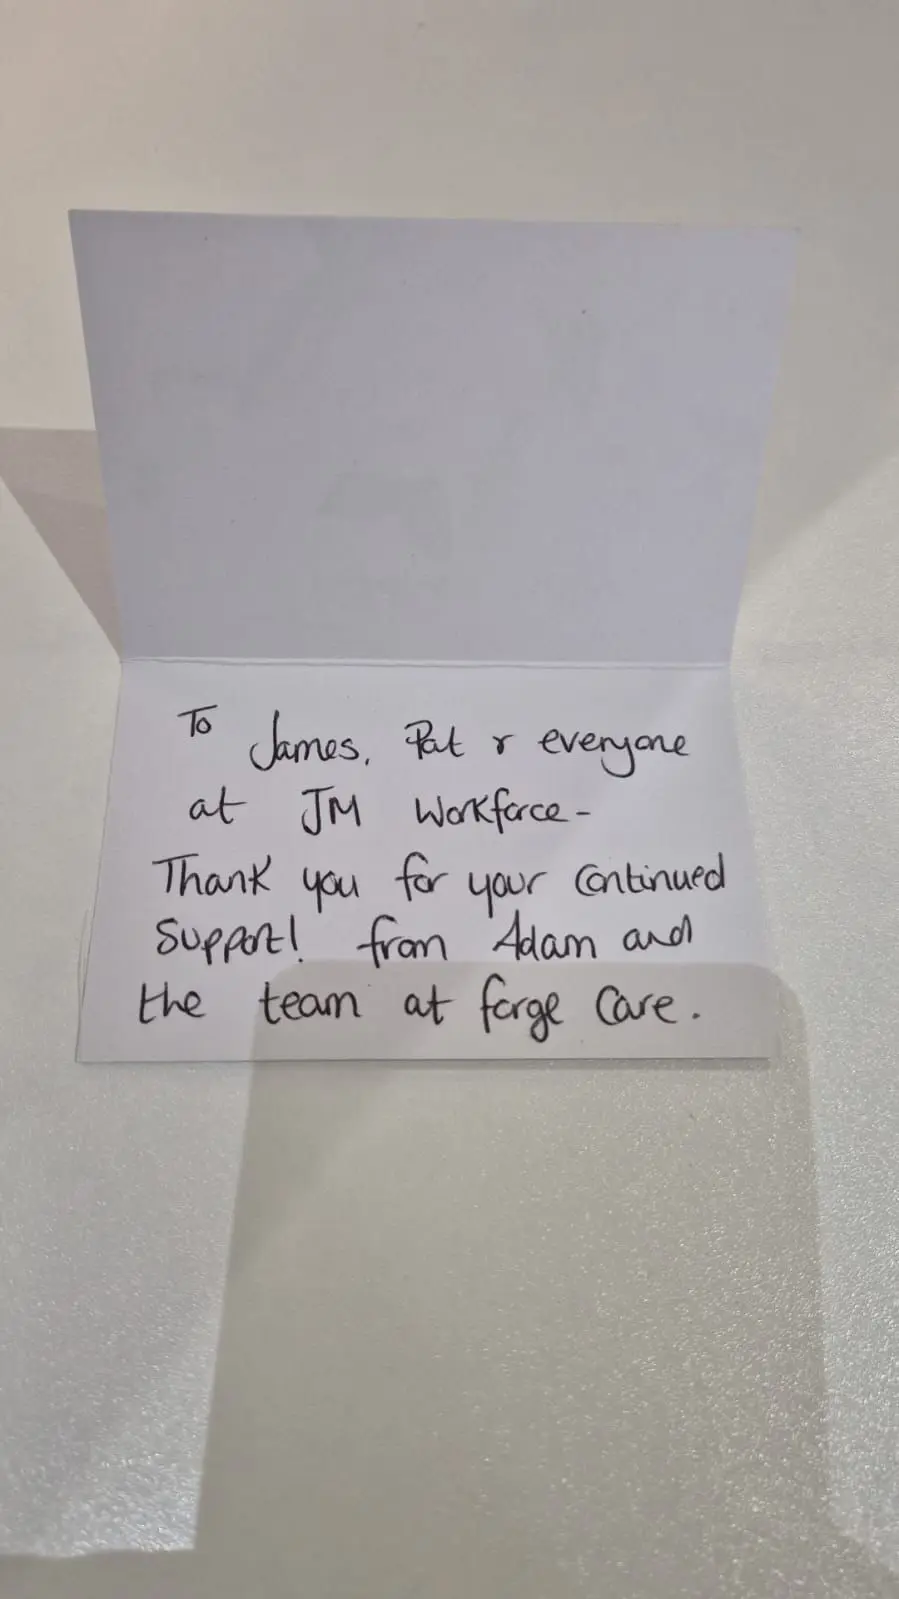 To James, Pat & everyone
at JM Workforce -
Thank you for your continued
Support! from Adam and
the team at forge Care.